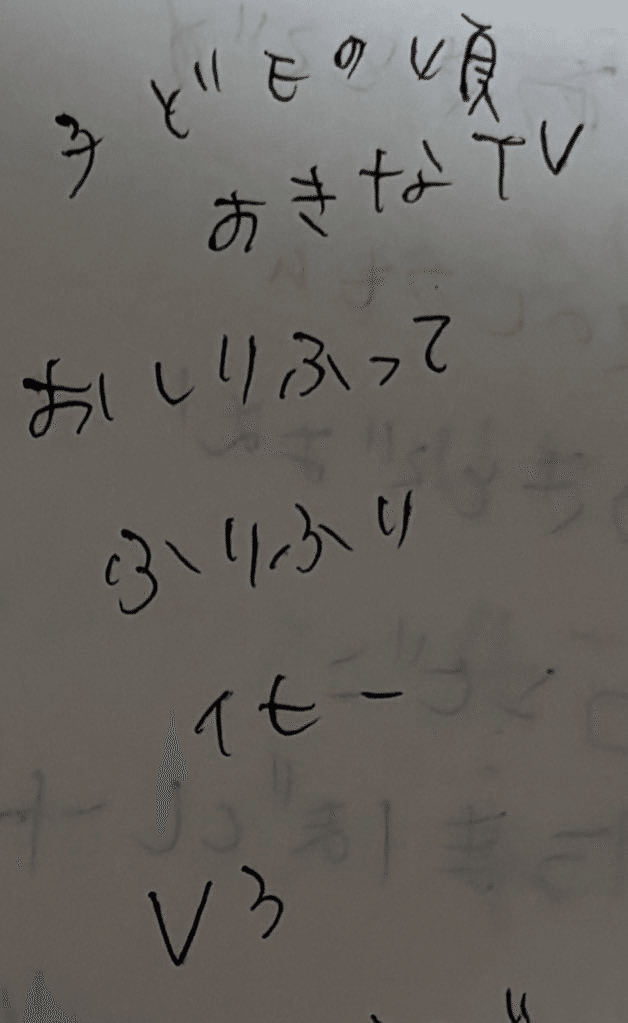 子どもの頃
おきなTV
おしりふって
ふりふり
イモー
V3